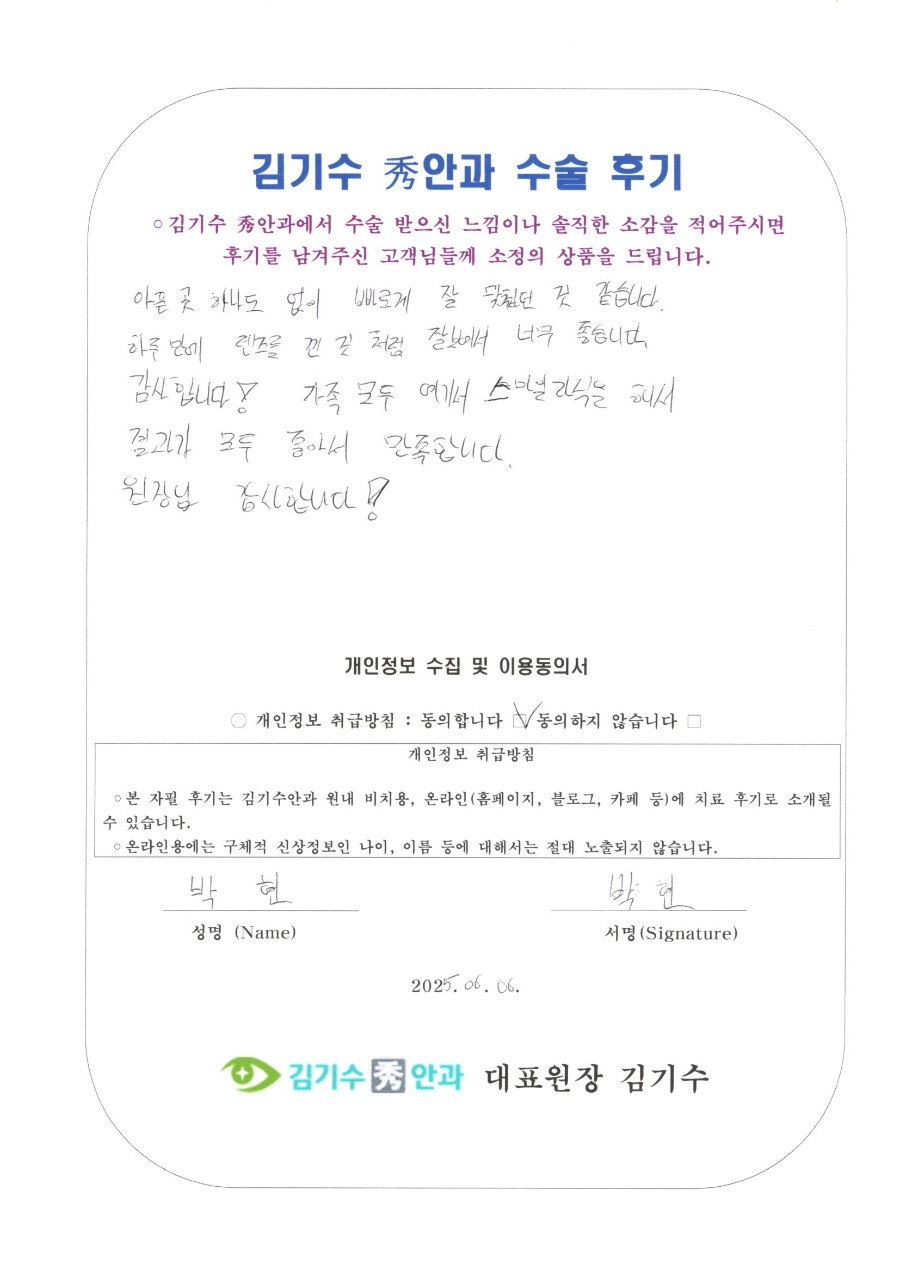 김기수 秀안과 수술 후기
○김기수 秀안과에서 수술 받으신 느낌이나 솔직한 소감을 적어주시면
후기를 남겨주신 고객님들께 소정의 상품을 드립니다.
아픈 곳 하나도 없이 빠르게 잘 맞췄던 것 같습니다.
하루 만에 렌즈를 낀 것 처럼 잘보여서 너무 좋습니다.
감사합니다! 가족 모두 여기서 스마일라식을 해서
결과가 모두 좋아서 만족합니다.
원장님 감사합니다!
개인정보 수집 및 이용동의서
○ 개인정보 취급방침 : 동의합니다 ☑ 동의하지 않습니다 □
개인정보 취급방침
○본 자필 후기는 김기수안과 원내 비치용, 온라인(홈페이지, 블로그, 카페 등)에 치료 후기로 소개될
수 있습니다.
○온라인용에는 구체적 신상정보인 나이, 이름 등에 대해서는 절대 노출되지 않습니다.
박 현 박 현
성명 (Name) 서명(Signature)
2025. 06. 06.
김기수 秀 안과 대표원장 김기수